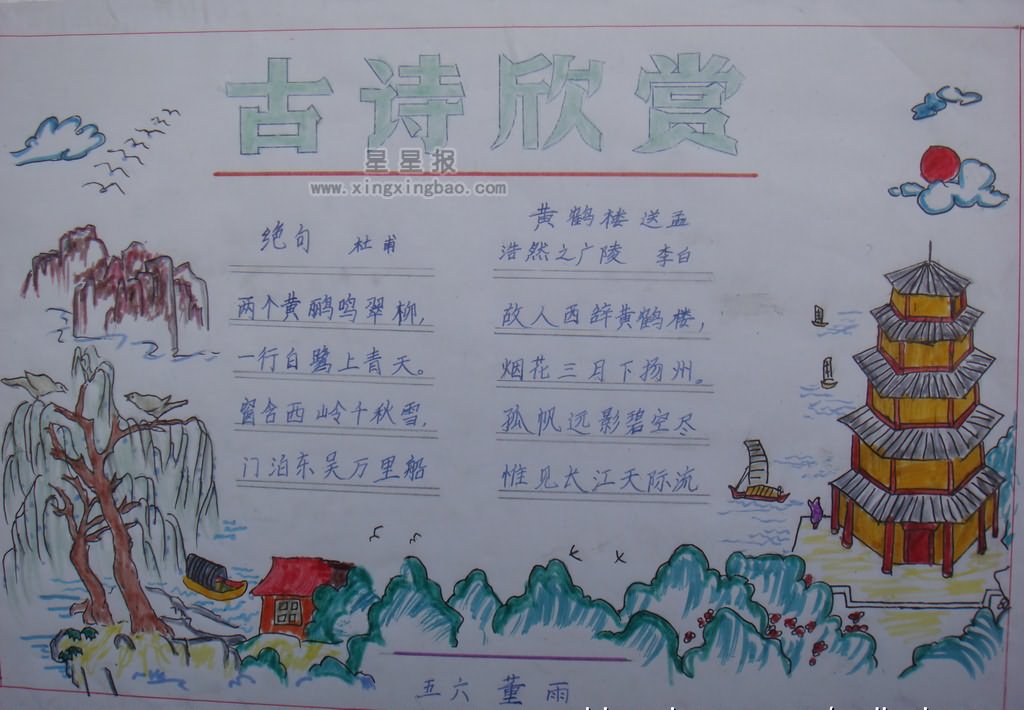 古诗欣赏
星星报
www.xingxingbao.com
绝句 杜甫
两个黄鹂鸣翠柳,
一行白鹭上青天。
窗含西岭千秋雪,
门泊东吴万里船
黄鹤楼送孟
浩然之广陵 李白
故人西辞黄鹤楼,
烟花三月下扬州。
孤帆远影碧空尽
惟见长江天际流
五六 董雨